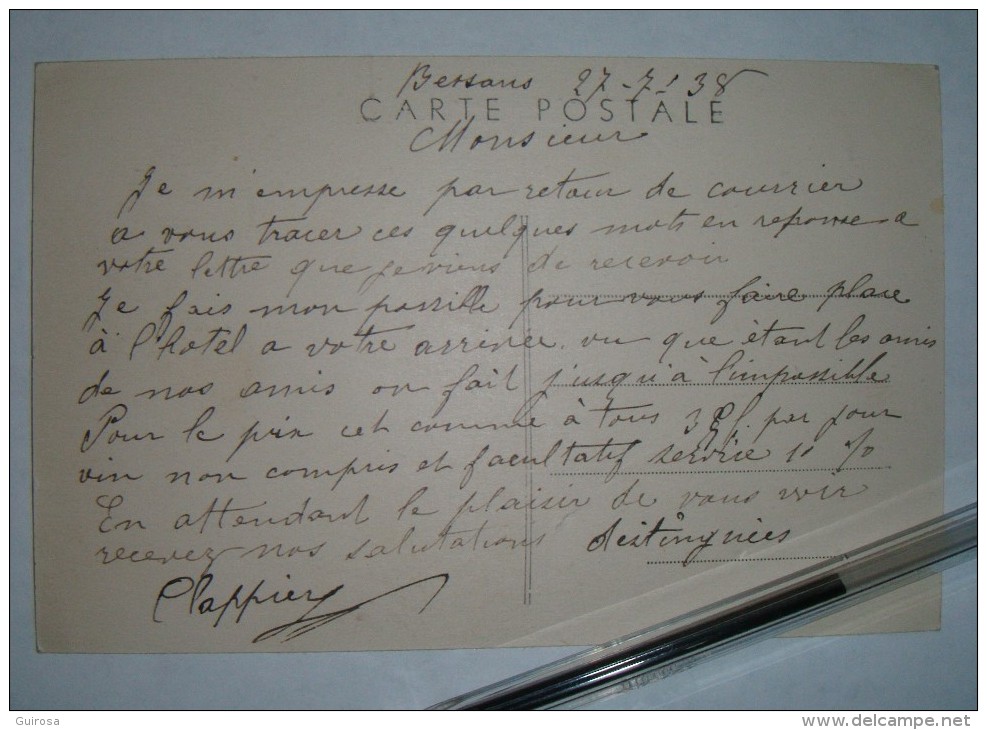 Bessans 27-7-38
CARTE POSTALE
Monsieur
Je m'empresse par retour de courrier
a vous tracer ces quelques mots en reponse a
votre lettre que je viens de recevoir
Je fais mon possible pour vous faire place
à l'hotel a votre arrivée. vu que étant les amis
de nos amis on fait jusqu'à l'impossible
Pour le prix cet comme à tous f. par jour
vin non compris et facultatif service 10 %
En attendant le plaisir de vous voir
recevez nos salutations distinguées
Clappier
Guirosa
www.delcampe.net